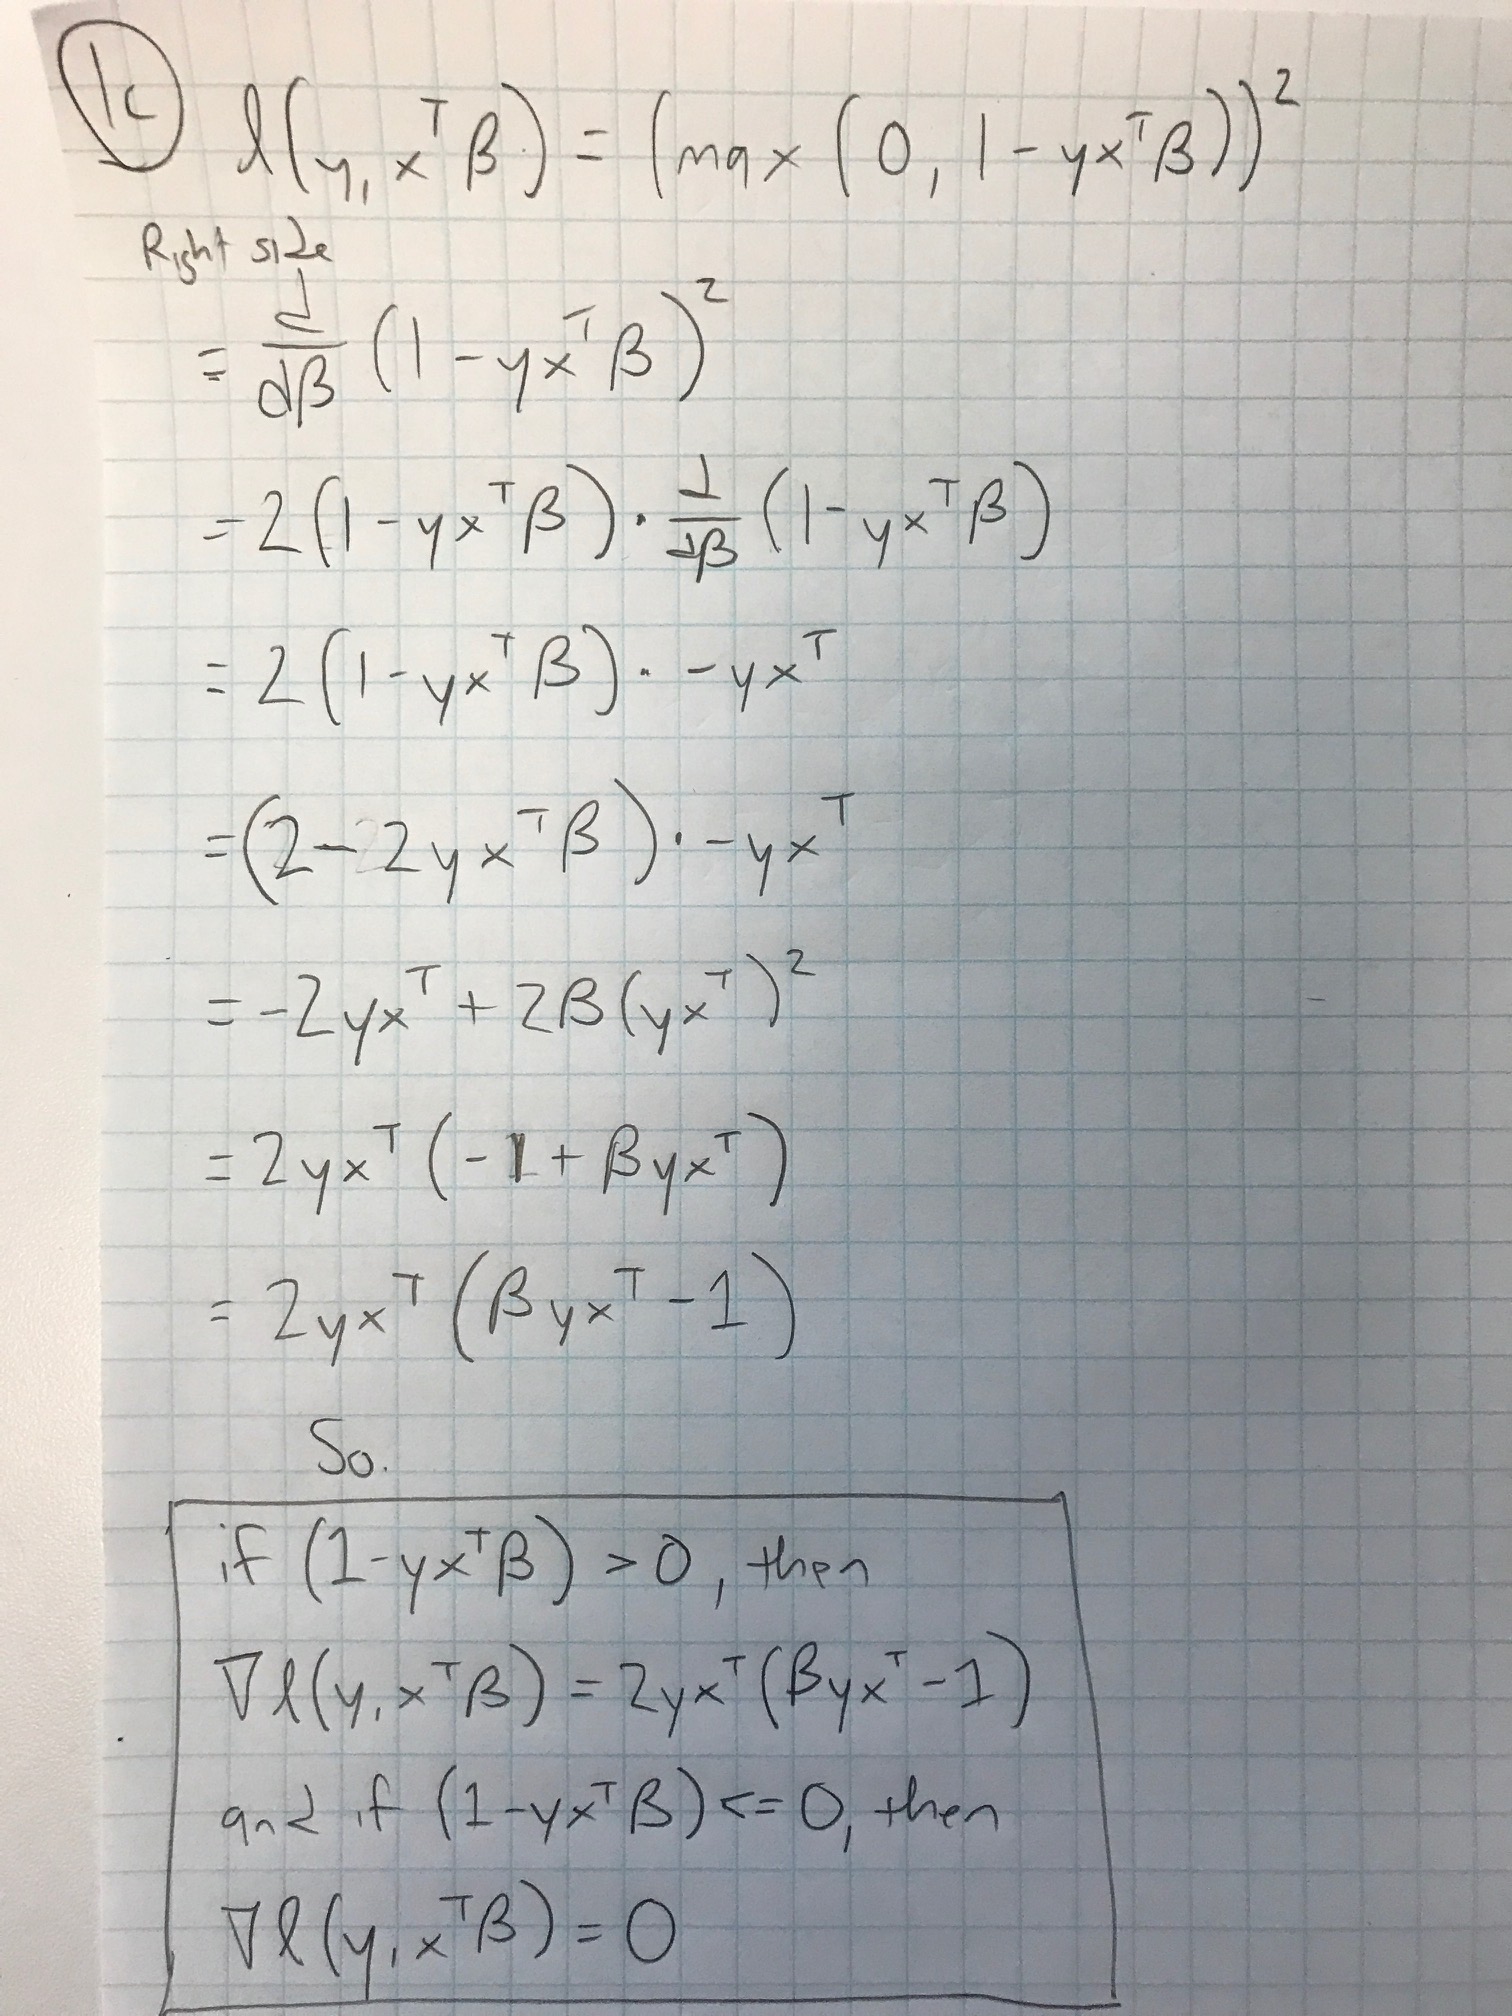 1c l(y, xᵀβ) = (max(0, 1-yxᵀβ))²
Right side
= d/dβ (1-yxᵀβ)²
= 2(1-yxᵀβ) · d/dβ (1-yxᵀβ)
= 2(1-yxᵀβ) · -yxᵀ
= (2-2yxᵀβ) · -yxᵀ
= -2yxᵀ + 2β(yxᵀ)²
= 2yxᵀ(-1 + βyxᵀ)
= 2yxᵀ(βyxᵀ-1)
So.
if (1-yxᵀβ) > 0, then
∇l(y, xᵀβ) = 2yxᵀ(βyxᵀ-1)
and if (1-yxᵀβ) <= 0, then
∇l(y, xᵀβ) = 0